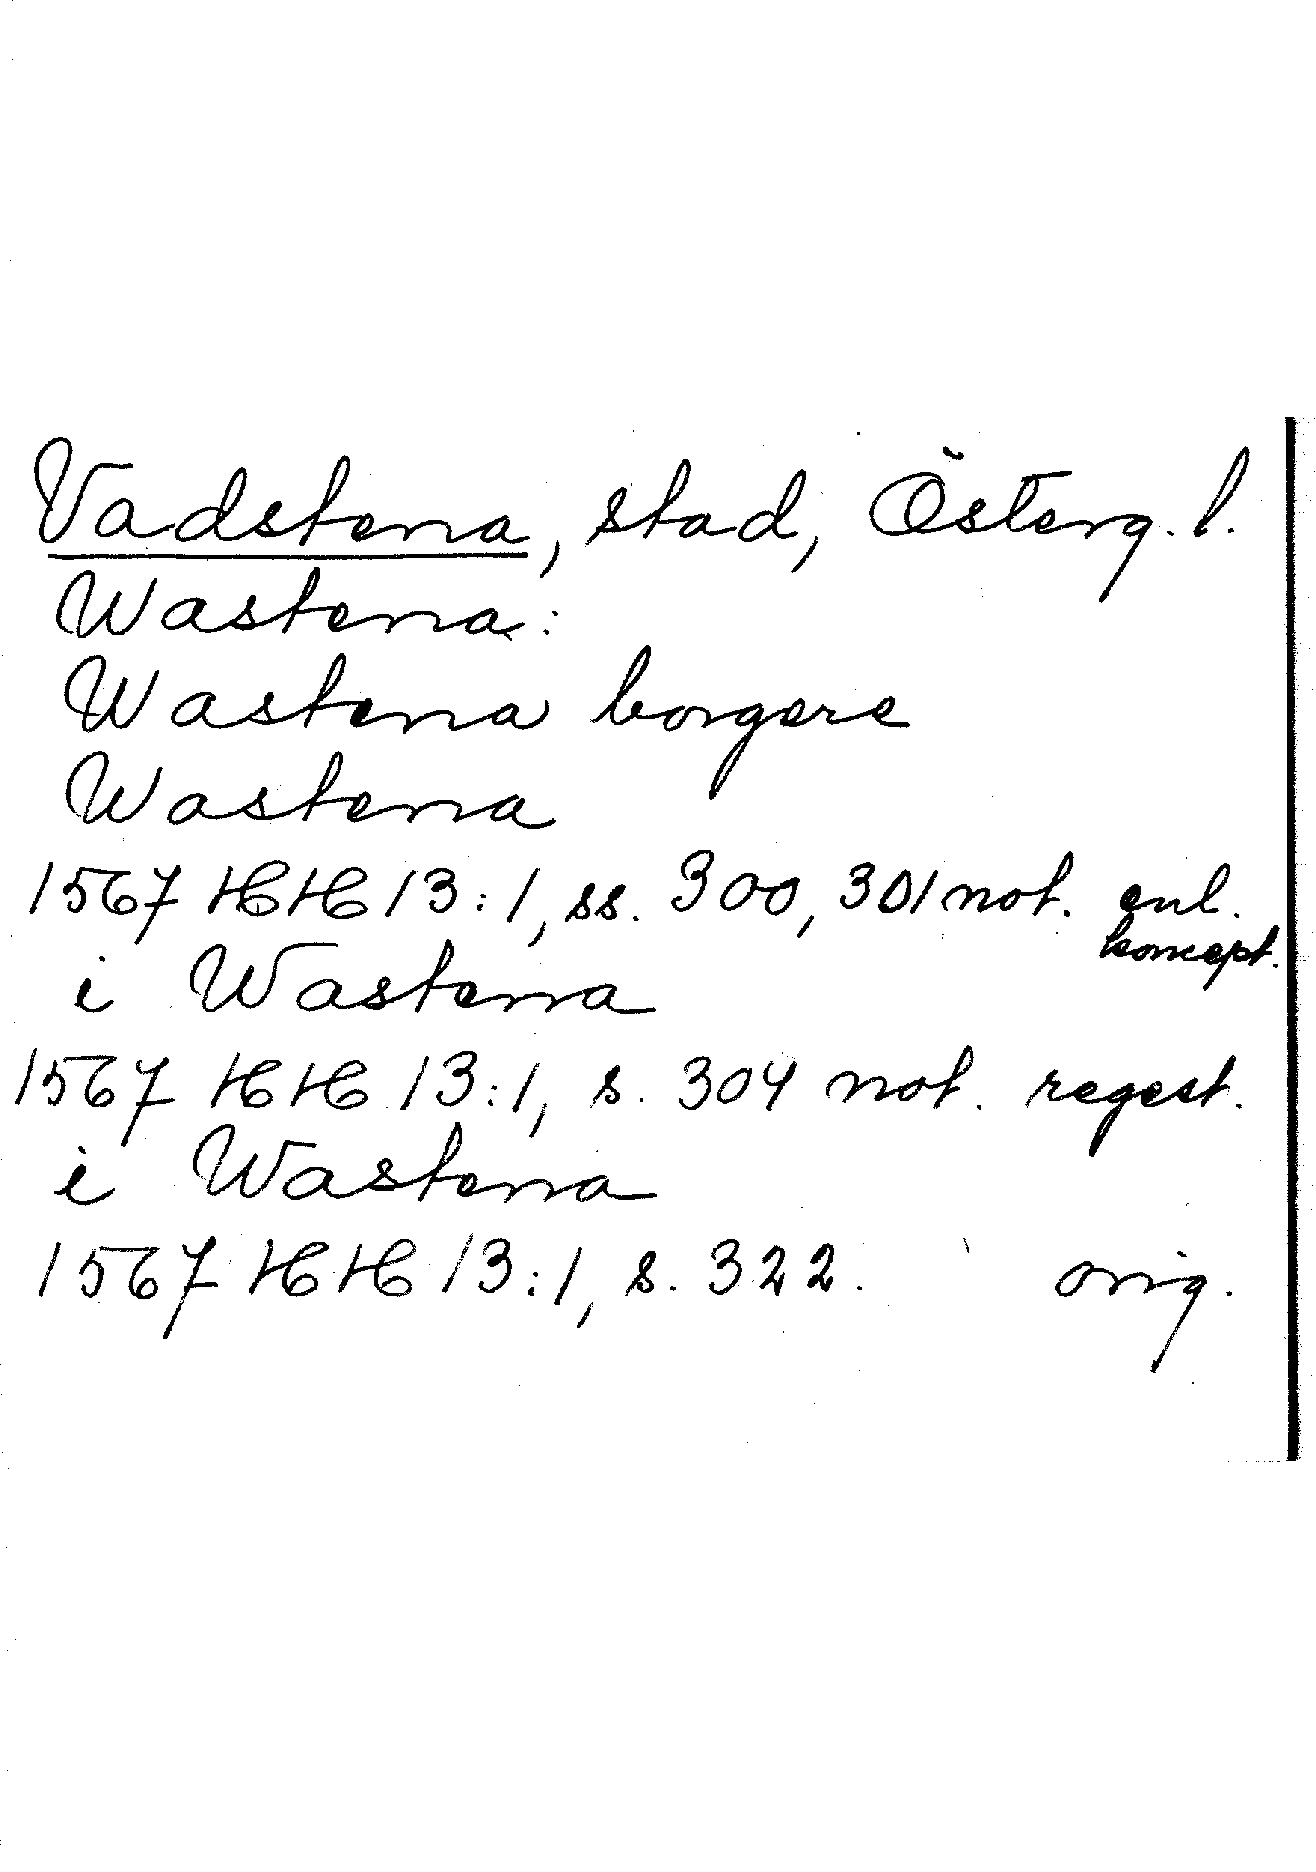 Vadstena, stad, Österg. l.
Wastena:
Wastena borgere
Wastena
1567 HH 13:1, ss. 300, 301 not. enl. koncept.
i Wastena
1567 HH 13:1, s. 304 not. regest.
i Wastena
1567 HH 13:1, s. 322. orig.